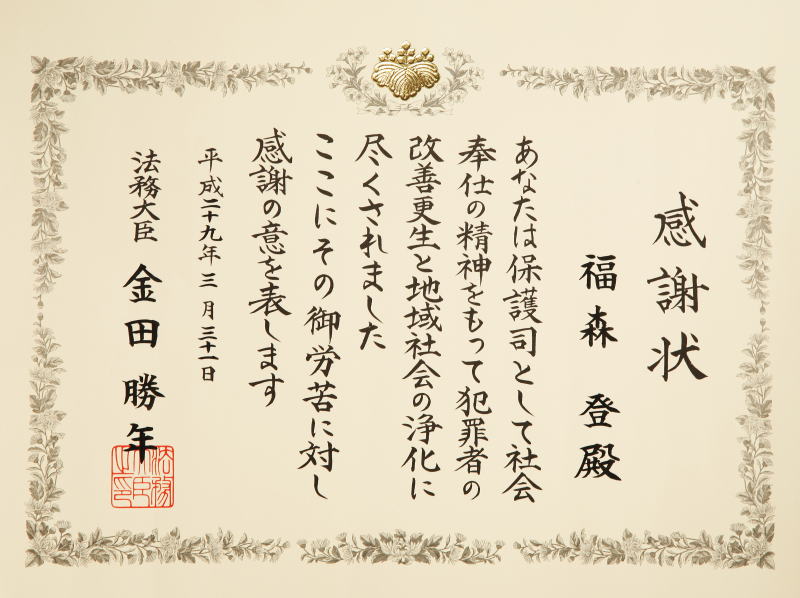 感謝状
福森 登殿
あなたは保護司として社会
奉仕の精神をもって犯罪者の
改善更生と地域社会の浄化に
尽くされました
ここにその御労苦に対し
感謝の意を表します
平成二十九年三月三十一日
法務大臣 金田勝年
法務大臣印